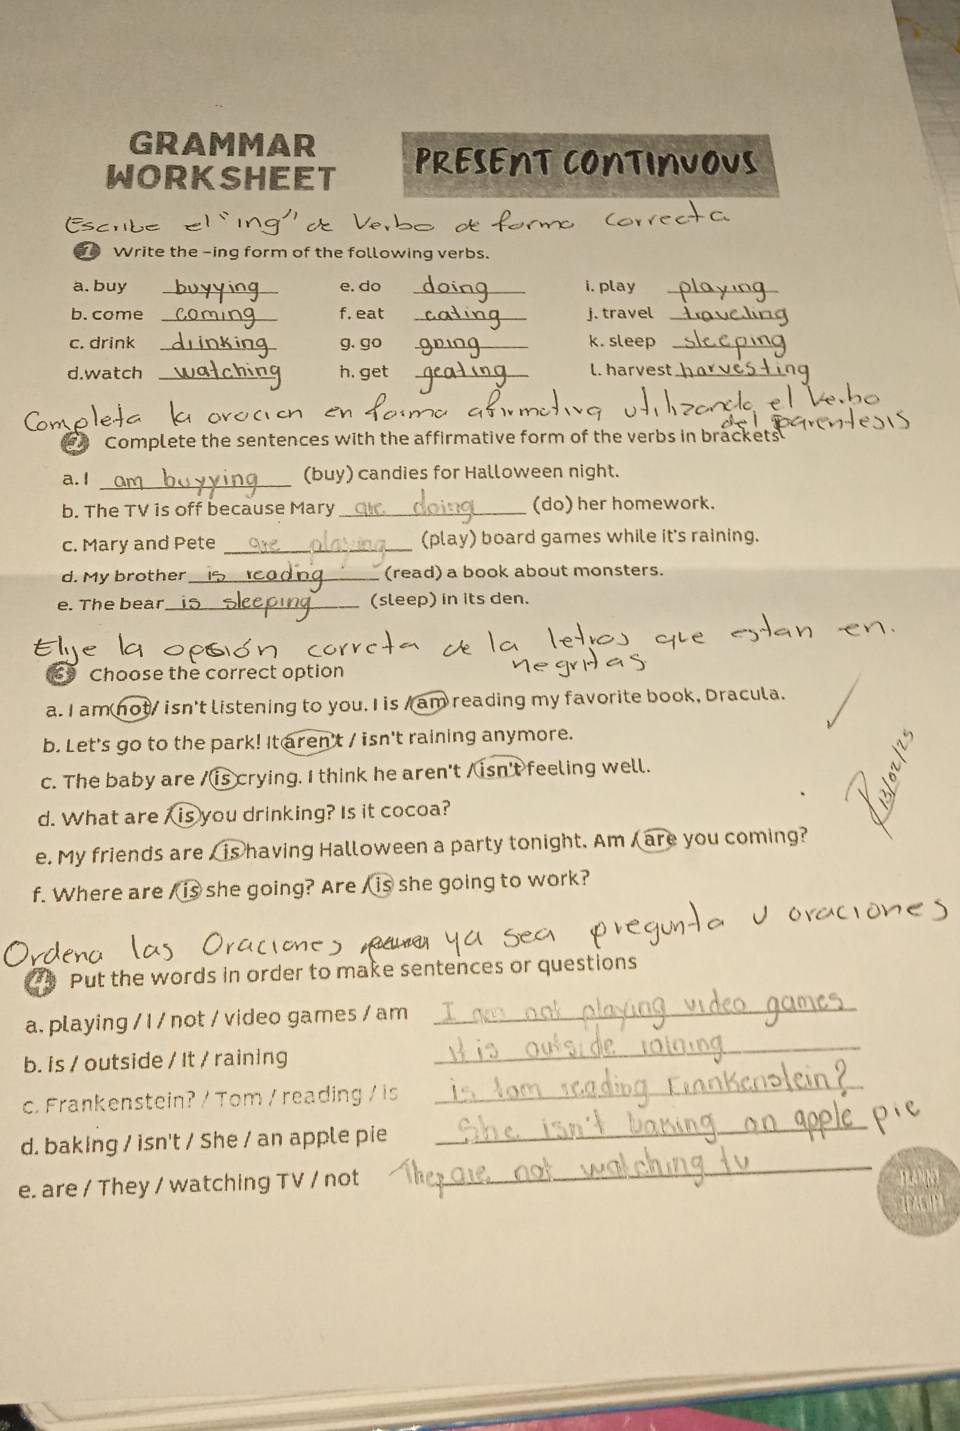 GRAMMAR
WORKSHEET
PRESENT CONTINUOUS
Escribe el "ing" de Verbo de forma correcta
1 Write the -ing form of the following verbs.
a. buy buyying e. do doing i. play playing
b. come coming f. eat eating j. travel traveling
c. drink drinking g. go going k. sleep sleeping
d. watch watching h. get geating l. harvest harvesting
Completa la oracion en forma afirmativa utilizando el Verbo
del parentesis
2 Complete the sentences with the affirmative form of the verbs in brackets
a. I am buyying (buy) candies for Halloween night.
b. The TV is off because Mary are doing (do) her homework.
c. Mary and Pete are playing (play) board games while it's raining.
d. My brother is readng (read) a book about monsters.
e. The bear is sleeping (sleep) in its den.
Elije la opsión correta de la letras que estan en.
negritas
3 Choose the correct option
a. I am not / isn't listening to you. I is / am reading my favorite book, Dracula.
b. Let's go to the park! It aren't / isn't raining anymore.
c. The baby are / is crying. I think he aren't / isn't feeling well.
d. What are / is you drinking? Is it cocoa?
e. My friends are / is having Halloween a party tonight. Am / are you coming?
f. Where are / is she going? Are / is she going to work?
13/02/25
Ordena las Oraciones ya sea pregunta u oraciones
4 Put the words in order to make sentences or questions
a. playing / I / not / video games / am I am not playing video games
b. is / outside / It / raining It is outside raining
c. Frankenstein? / Tom / reading / is is tom reading Frankenstein?
d. baking / isn't / She / an apple pie She isn't baking an apple pie
e. are / They / watching TV / not They are not watching tv